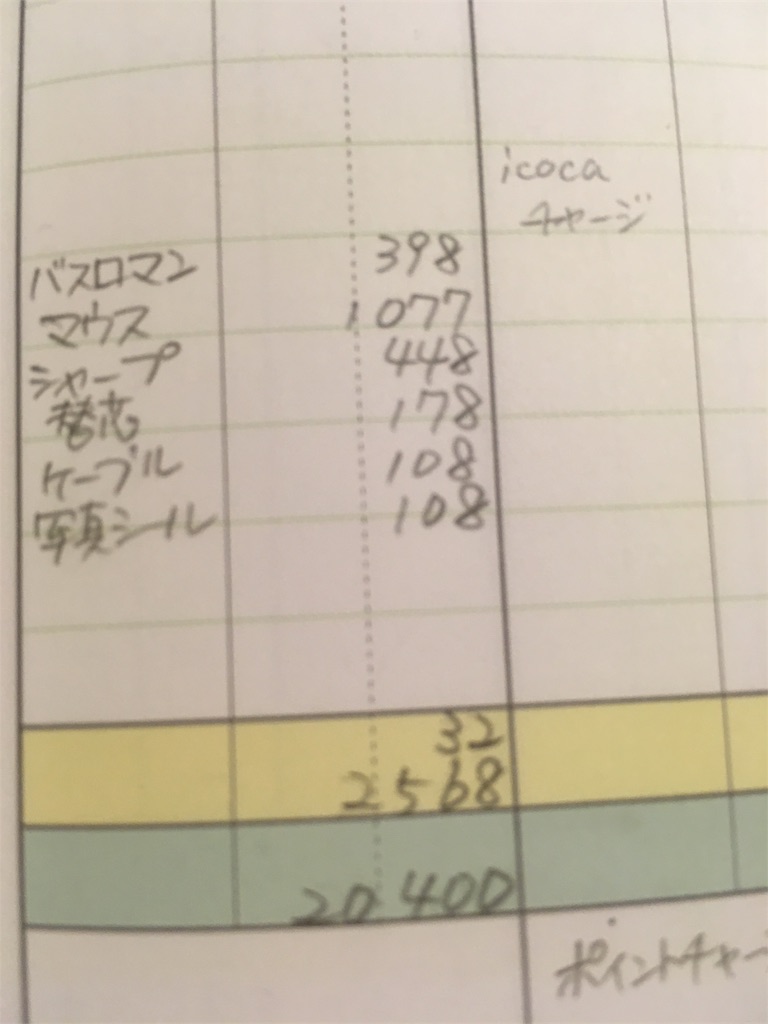 icoca
チャージ
バスロマン 398
マウス 1077
シャープ 448
替芯 178
ケーブル 108
写真シール 108
32
2568
20400
ポイントチャー